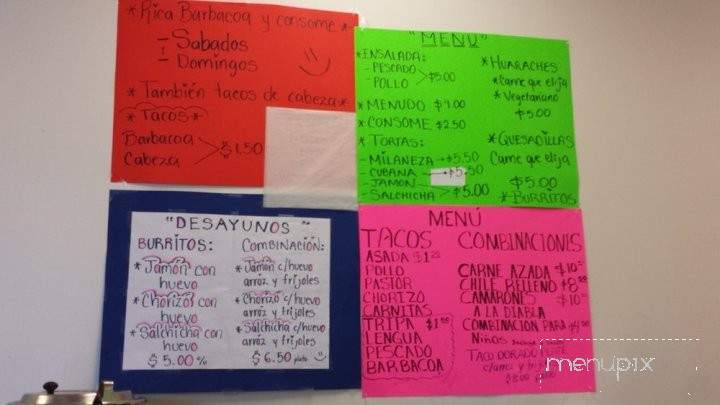 *Rica Barbacoa y consome*
- Sabados
I
- Domingos
*También tacos de cabeza*
*Tacos*
Barbacoa
Cabeza
$1.50
"MENU"
*ENSALADA:
- PESCADO
- POLLO
$5.00
*MENUDO $9.00
*CONSOME $2.50
*TORTAS:
- MILANEZA → $5.50
- CUBANA → $5.50
- JAMON
- SALCHICHA
$5.00
*HUARACHES
*Carne que elija
*Vegetariano
$5.00
*QUESADILLAS
Carne que elija
$5.00
*BURRITOS
"DESAYUNOS"
BURRITOS:
*Jamón con
huevo
*Chorizo con
huevo
*Salchicha con
huevo
$5.00 %
COMBINACIÓN:
*Jamón c/huevo
arroz y frijoles
*Chorizo c/huevo
arroz y frijoles
*Salchicha c/huevo
arroz y frijoles
$6.50 plato
MENÚ
TACOS
ASADA $1.25
POLLO
PASTOR
CHORIZO
CARNITAS
TRIPA $1.50
LENGUA
PESCADO
BARBACOA
COMBINACIONES
CARNE AZADA $10
CHILE RELLENO $8
CAMARONES $10
A LA DIABLA
COMBINACION PARA
NIÑOS
TACO DORADO
c/arroz y frijoles
menupix